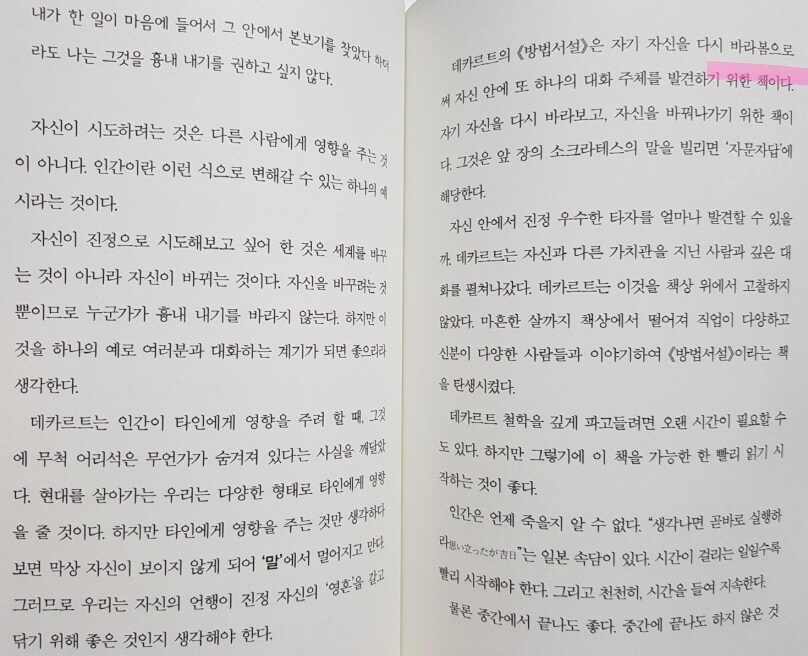 내가 한 일이 마음에 들어서 그 안에서 본보기를 찾았다 하더
라도 나는 그것을 흉내 내기를 권하고 싶지 않다.
자신이 시도하려는 것은 다른 사람에게 영향을 주는 것
이 아니다. 인간이란 이런 식으로 변해갈 수 있는 하나의 예
시라는 것이다.
자신이 진정으로 시도해보고 싶어 한 것은 세계를 바꾸
는 것이 아니라 자신이 바뀌는 것이다. 자신을 바꾸려는 것
뿐이므로 누군가가 흉내 내기를 바라지 않는다. 하지만 이
것을 하나의 예로 여러분과 대화하는 계기가 되면 좋으리라
생각한다.
데카르트는 인간이 타인에게 영향을 주려 할 때, 그것
에 무척 어리석은 무언가가 숨겨져 있다는 사실을 깨달았
다. 현대를 살아가는 우리는 다양한 형태로 타인에게 영향
을 줄 것이다. 하지만 타인에게 영향을 주는 것만 생각하다
보면 막상 자신이 보이지 않게 되어 ‘말’에서 멀어지고 만다.
그러므로 우리는 자신의 언행이 진정 자신의 ‘영혼’을 갈고
닦기 위해 좋은 것인지 생각해야 한다.
데카르트의 《방법서설》은 자기 자신을 다시 바라봄으로
써 자신 안에 또 하나의 대화 주체를 발견하기 위한 책이다.
자기 자신을 다시 바라보고, 자신을 바꿔나가기 위한 책이
다. 그것은 앞 장의 소크라테스의 말을 빌리면 ‘자문자답’에
해당한다.
자신 안에서 진정 우수한 타자를 얼마나 발견할 수 있을
까. 데카르트는 자신과 다른 가치관을 지닌 사람과 깊은 대
화를 펼쳐나갔다. 데카르트는 이것을 책상 위에서 고찰하지
않았다. 마흔한 살까지 책상에서 떨어져 직업이 다양하고
신분이 다양한 사람들과 이야기하여 《방법서설》이라는 책
을 탄생시켰다.
데카르트 철학을 깊게 파고들려면 오랜 시간이 필요할 수
도 있다. 하지만 그렇기에 이 책을 가능한 한 빨리 읽기 시
작하는 것이 좋다.
인간은 언제 죽을지 알 수 없다. “생각나면 곧바로 실행하
라思い立ったが吉日”는 일본 속담이 있다. 시간이 걸리는 일일수록
빨리 시작해야 한다. 그리고 천천히, 시간을 들여 지속한다.
물론 중간에서 끝나도 좋다. 중간에 끝나도 하지 않은 것